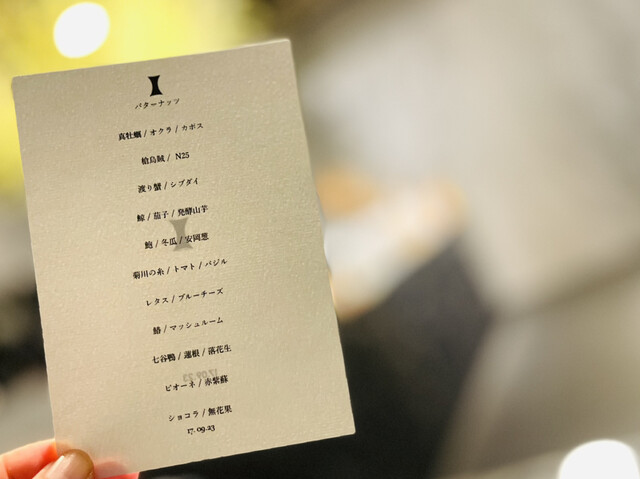 バターナッツ
真牡蠣 / オクラ / カボス
槍烏賊 / N25
渡り蟹 / シブダイ
鯨 / 茄子 / 発酵山芋
鮑 / 冬瓜 / 安岡葱
菊川の糸 / トマト / バジル
レタス / ブルーチーズ
鰆 / マッシュルーム
七谷鴨 / 蓮根 / 落花生
ピオーネ / 赤紫蘇
ショコラ / 無花果
17. 09.23